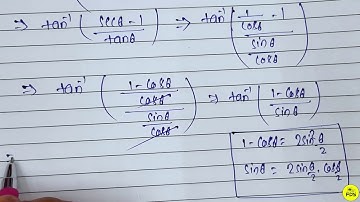 ⇒ tan⁻¹ ( (secθ - 1) / tanθ ) ⇒ tan⁻¹ ( (1/cosθ - 1) / (sinθ/cosθ) )
⇒ tan⁻¹ ( ((1 - cosθ)/cosθ) / (sinθ/cosθ) ) ⇒ tan⁻¹ ( (1 - cosθ) / sinθ )
1 - cosθ = 2sin²θ/2
sinθ = 2sinθ/2 . cosθ/2